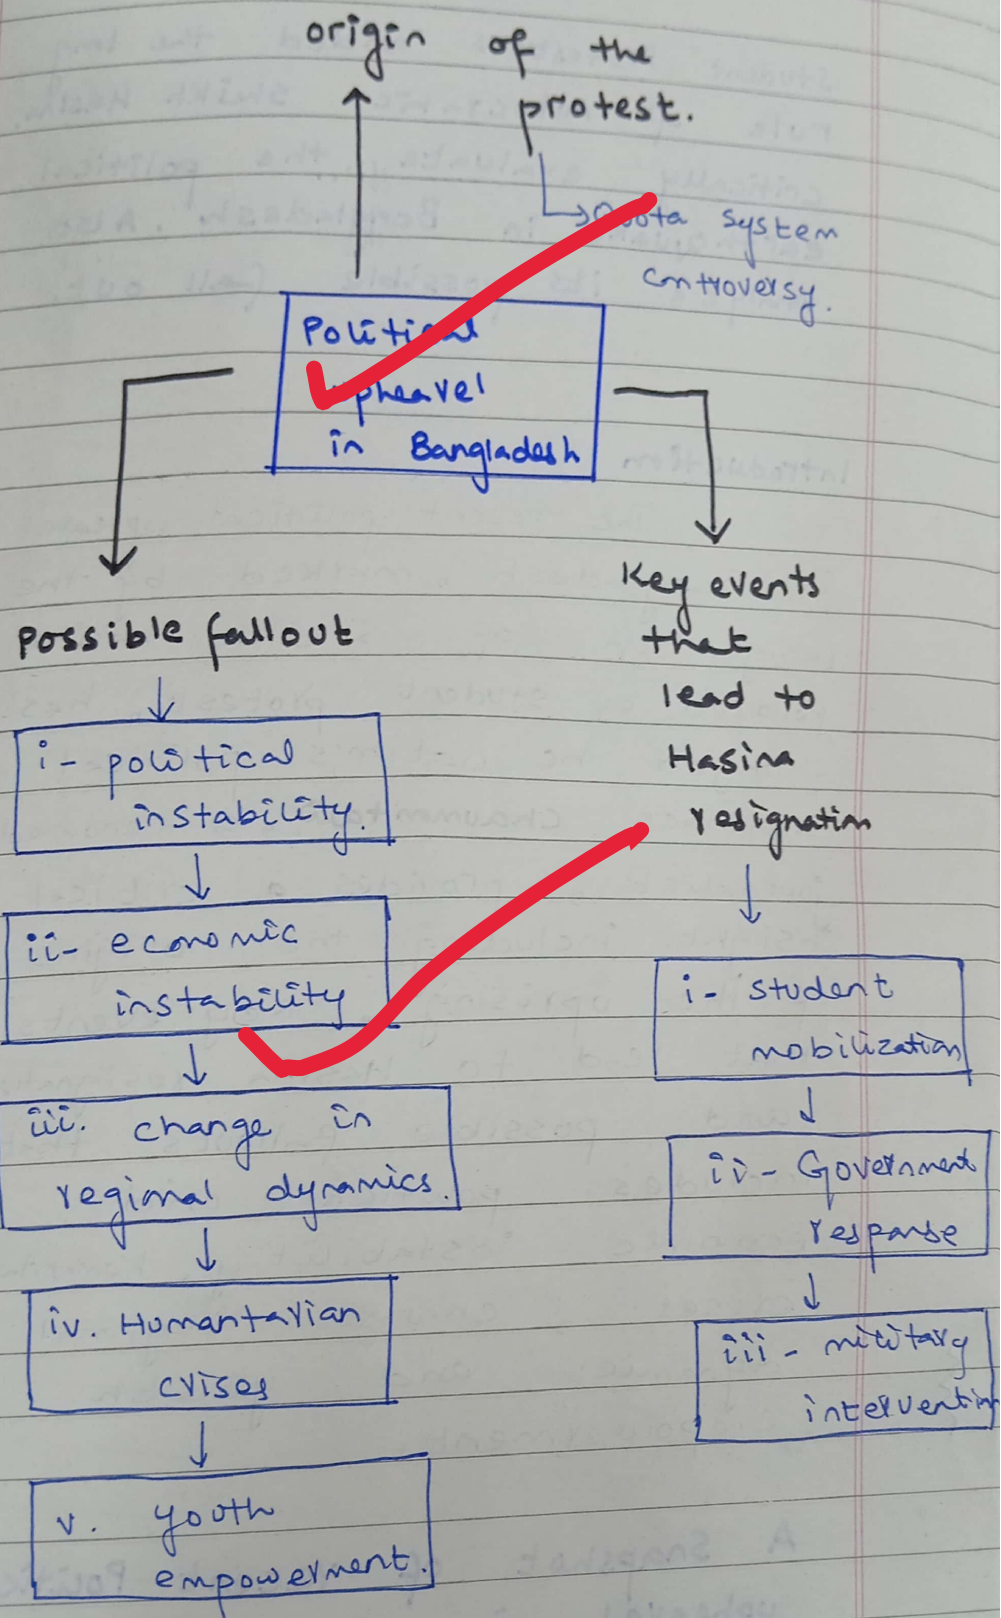 origin of the
protest.
Quota system
controversy.
Political
upheavel
in Bangladesh
Possible fallout
i - political
instability.
ii - economic
instability
iii. change in
regional dynamics.
iv. Humantarian
crises
v. youth
empowerment.
Key events
that
lead to
Hasina
resignation
i - student
mobilization
ii - Government
response
iii - military
intervention